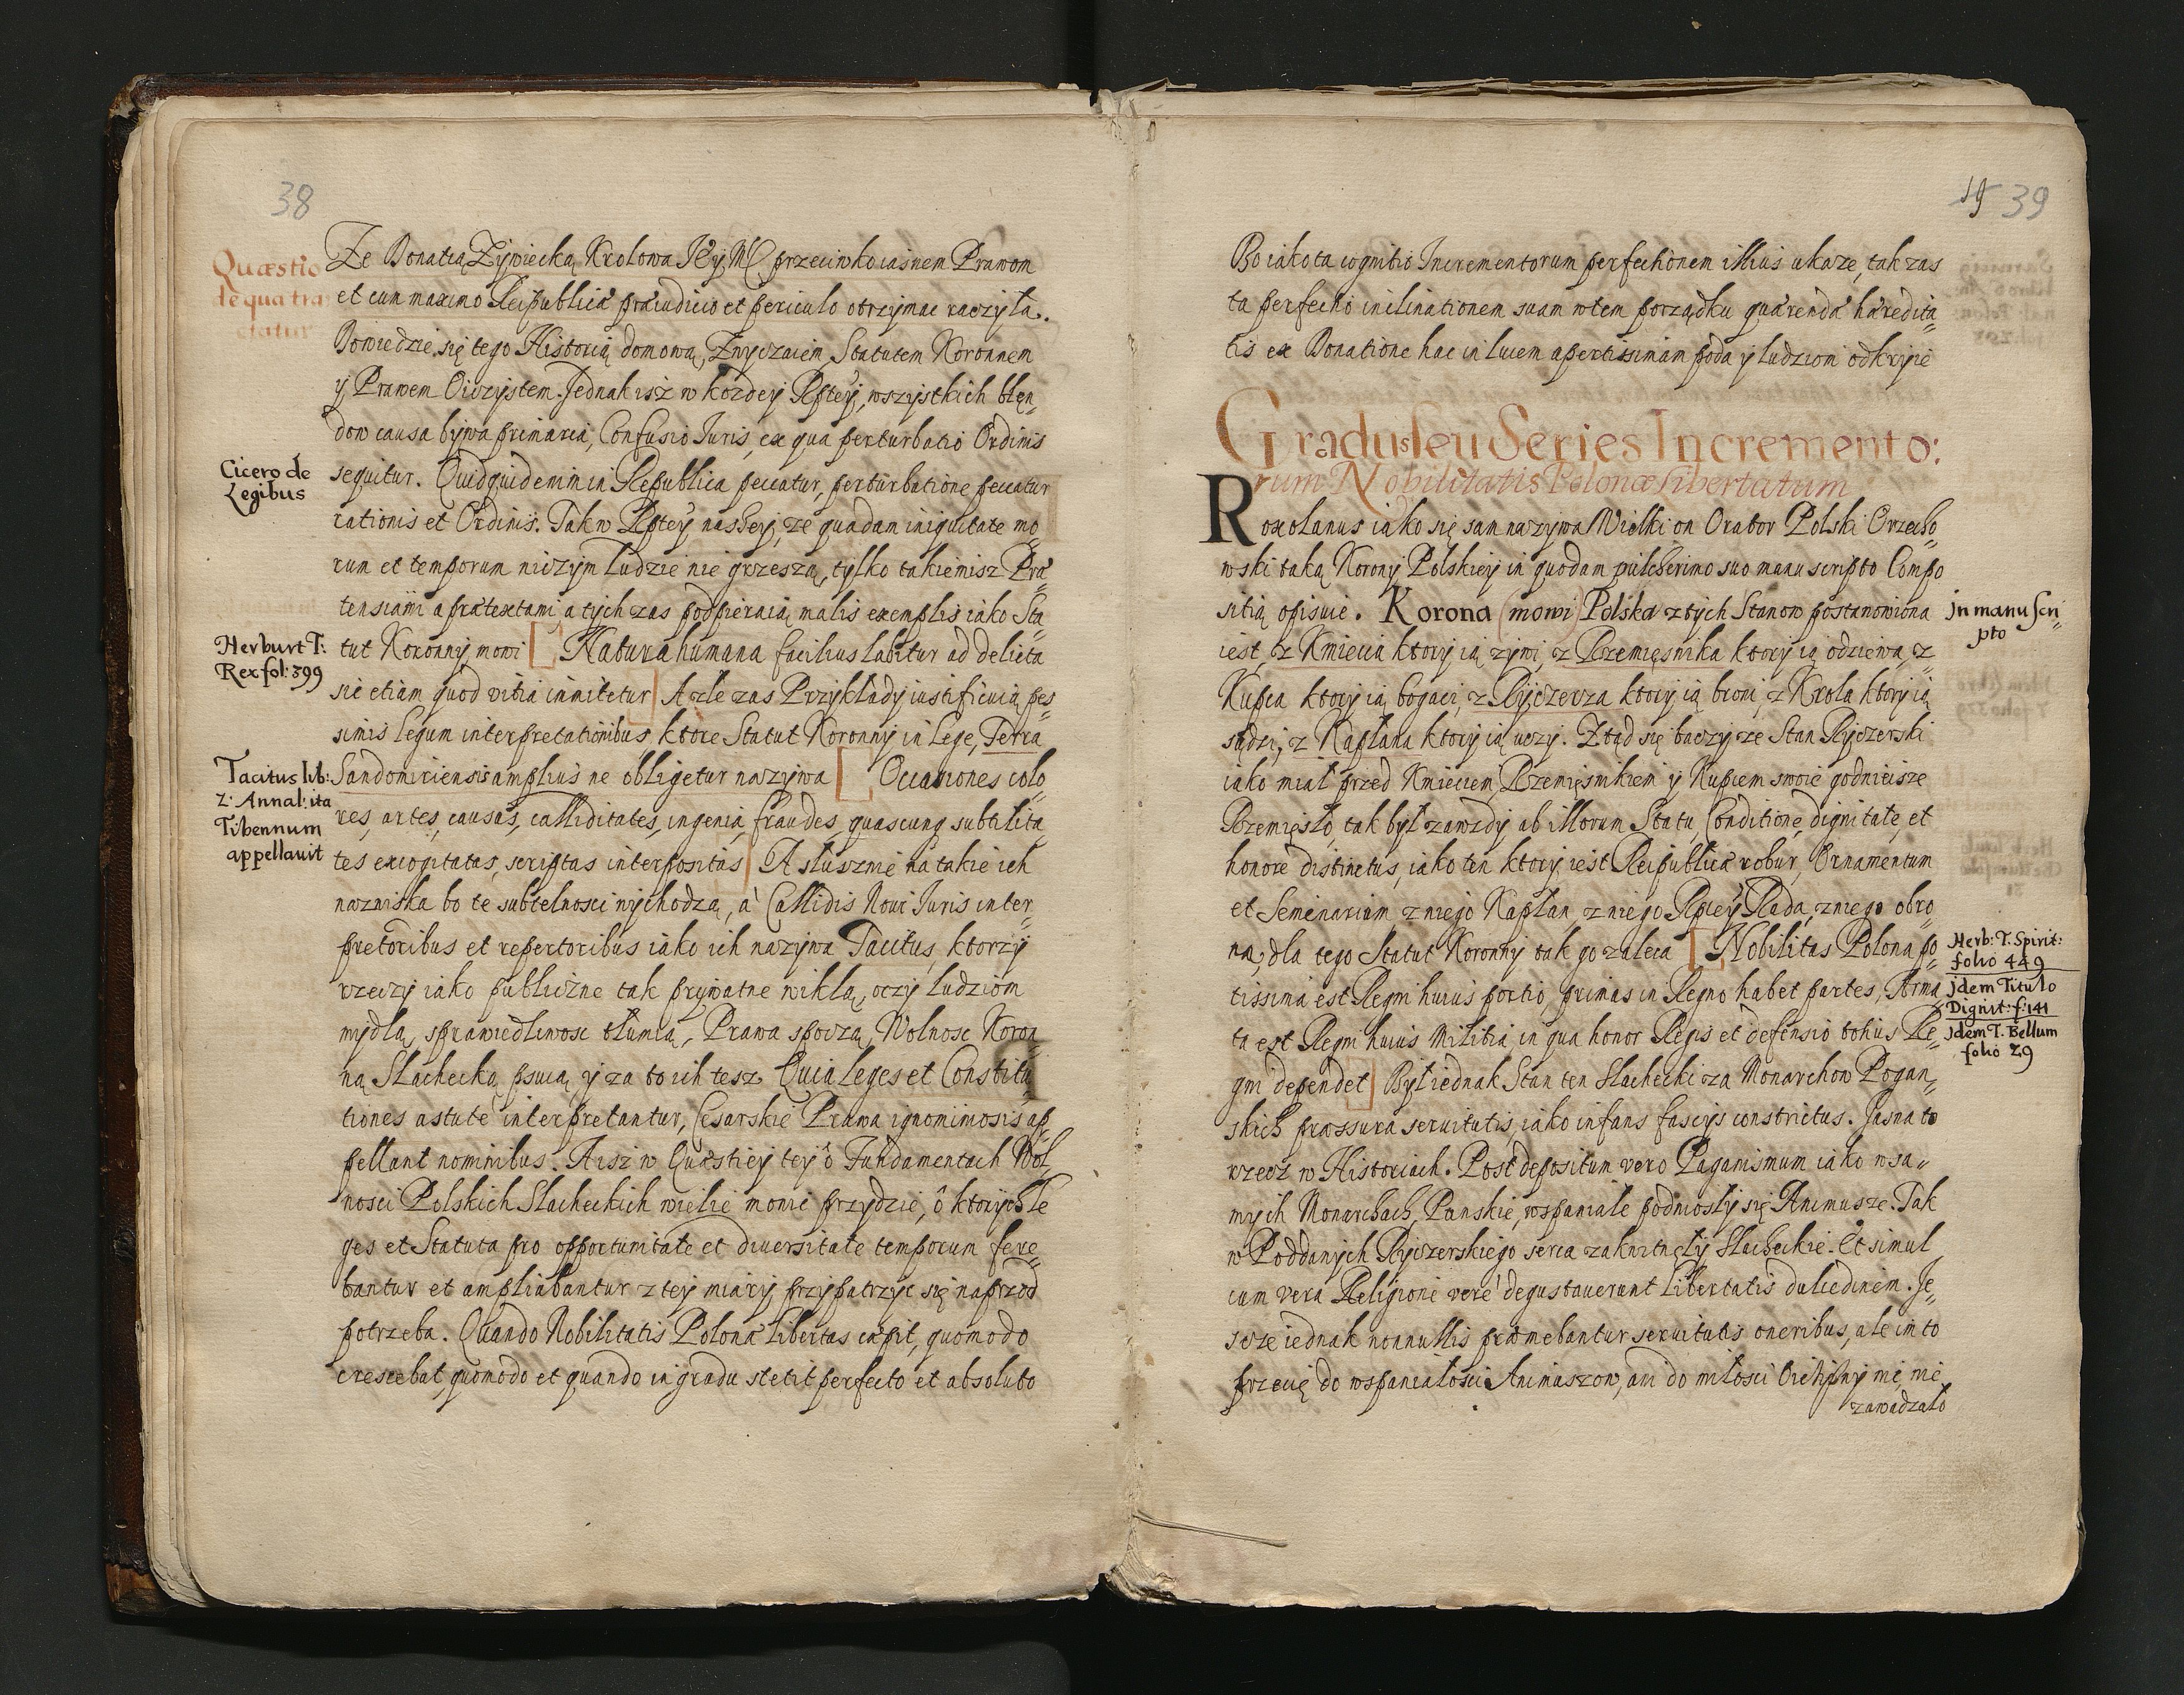 38
Quæstio
de qua tra
ctatur
Ze Donatią Zywiecką Krolowa Jey M przeciwko iasnem Prawom
et cum maximo Reipublicæ præiudicio et periculo otrzymac raczyła.
Dowiedzie się tego Historią domową, Zwyczaiem, Statutem Koronnem
y Prawem Oiczystem. Jednak isz w kozdey Rptey, wszystkich błęn„
dow causa bywa primaria, Confusio Iuris, ex qua perturbatio Ordinis
Cicero de
Legibus
sequitur. Quidquid enim in Republica peccatur, perturbatione peccatur
rationis et Ordinis. Tak w Rptey naszey, ze quadam iniquitate mo„
rum et temporum niczym Ludzie nie grzeszą, tylko takiemisz Præ„
tensiami a prætextami a tych zas podpieraią malis exemplis iako Sta„
Herburt T:
Rex fol: 399
tut Koronny mowi [ Natura humana facilius labitur ad delicta
sic etiam quod vitia inmitetur ] A złe zas Przykłady iustificuią pes„
simis Legum interpretationibus, ktore Statut Koronny in Lege, Terra
Tacitus lib:
2: Annal: ita
Tibennum
appellavit
Sandomiriensis amplius ne obligetur nazywa [ Occasiones colo„
res, artes, causas, calliditates, ingenia, fraudes, quascunq subtilita„
tes excogitatas, scriptas interpositas ] A słusznie na takie ich
nazwiska bo te subtelnosci wychodzą, à Callidis Novi Iuris inter„
pretoribus et repertoribus iako ich nazywa Tacitus, ktorzy
rzeczy iako publiczne tak prywatne wikłą, oczy ludziom
mydlą, sprawiedliwosc tłumią, Prawa sporzą, Wolnosc Koron„
ną Slachecką psuią y za to ich tesz. Quia leges et Constitu„
tiones astutè interpretantur, Cesarskie Prawa ignominiosis ap„
pellant nominibus. A isz w Quæstiey tey ô Fundamentach Wol„
nosci Polskich Slacheckich wielie mowic przydzie, ô ktorych Le„
ges et Statuta pro opportunitate et diversitate temporum fere„
bantur et ampliabantur z tey miary przypatrzyc się naprzod
potrzeba. Quando Nobilitatis Polonæ libertas cæpit, quomodo
crescebat, quomodo et quando in gradu stetit perfecto et absoluto
19 39
Bo iako ta cognitio Incrementorum perfectionem illius ukaze, tak zas
ta perfectio inclinationem suam w tem porządku quærendæ hæredita„
tis ex Donatione hac in lucem apertissimam poda y ludziom odkryie
Gradus seu Series Incremento:
rum Nobilitatis Polonæ libertatum
Roxolanus iako się sam nazywa Wielki on Orator Polski Orzecho„
wski taką Korony Polskiey in quodam pulcherimo suo manuscripto Compo
sitią opisuie. Korona (mowi) Polska z tych Stanow postanowiona
Jn manu Scri„
pto
iest, z Kmiecia ktory ią zywi, z Rzemięsnika ktory ią odziewa, z
Kupca ktory ią bogaci, z Ryczerza ktory ią broni, z Krola ktory ią
sądzi, z Kapłana ktory ią uczy. Ztąd się baczy ze Stan Ryczerski
iako miał przed Kmieciem, Rzemięsnikiem y Kupcem swoie godnieisze
Rzemięsło, tak był zawzdy ab illorum Statu, Conditione, dignitate, et
honore distinctus, iako ten ktory iest Reipublicæ robur, Ornamentum
et Seminarium z niego Kapłan, z niego Rptey Rada, z niego obro„
na, dla tego Statut Koronny tak go zaleca [ Nobilitas Polona po„
Herb: T. Spirit:
folio 449
tissima est Regni huius portio, primas in Regno habet partes, Arma„
Jdem Titulo
Dignit: f: 141
ta est Regni huius Militia, in qua honor Regis et defensio totius Re„
Jdem T. Bellum
folio 29
gni dependet ] Był iednak Stan ten Slachecki za Monarchow Pogan„
skich pressura servitutis, iako infans fasciis constrictus. Jasna to
rzecz w Historiach. Post depositum vero Paganismum iako w sa„
mych Monarchach, Panskie, wspaniałe podniosły się Animusze. Tak
w Poddanych Ryczerskiego serca zakwitnęły Slacheckie. Et simul
cum vera Religione verè degustaverunt Libertatis dulcedinem. Je„
scze iednak nonnullis præmebantur servitutis oneribus, ale im to
przecię do wspaniałosci Animuszow, ani do miłosci Oiczyzny nic nie
zawadzało